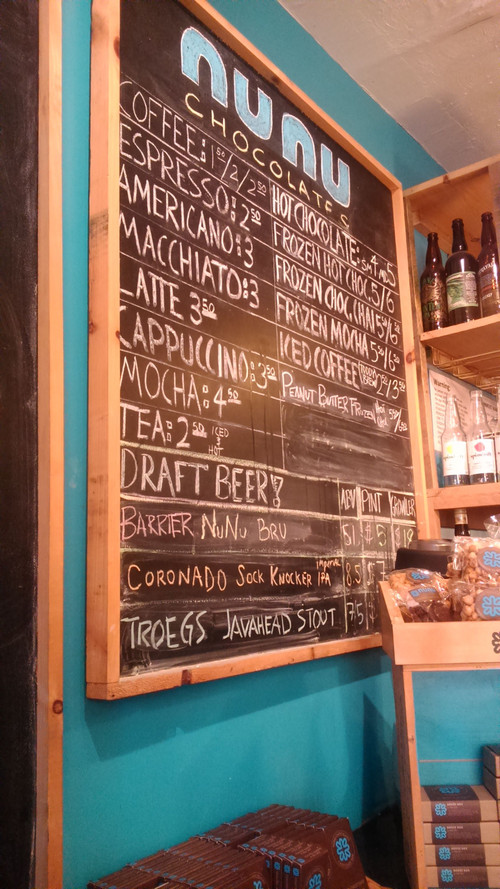 nunu
CHOCOLATES
COFFEE: 1⁵⁰/2/2⁵⁰
ESPRESSO: 2⁵⁰
AMERICANO: 3
MACCHIATO: 3
LATTE 3⁵⁰
CAPPUCCINO: 3⁵⁰
MOCHA: 4⁵⁰
TEA: 2⁵⁰ ICED & HOT
HOT CHOCOLATE: SM 4 MD 5
FROZEN HOT CHOC 5/6
FROZEN CHOC. CHAI 5⁵⁰/6⁵⁰
FROZEN MOCHA 5⁵⁰/6⁵⁰
ICED COFFEE 2⁵⁰/3⁵⁰
PEANUT BUTTER FROZEN
DRAFT BEER! ABV PINT GROWLER
BARRIER NUNU BRU 5.1 $5 $18
CORONADO SOCK KNOCKER imperial IPA 8.5 $7
TROEGS JAVAHEAD STOUT 7.5